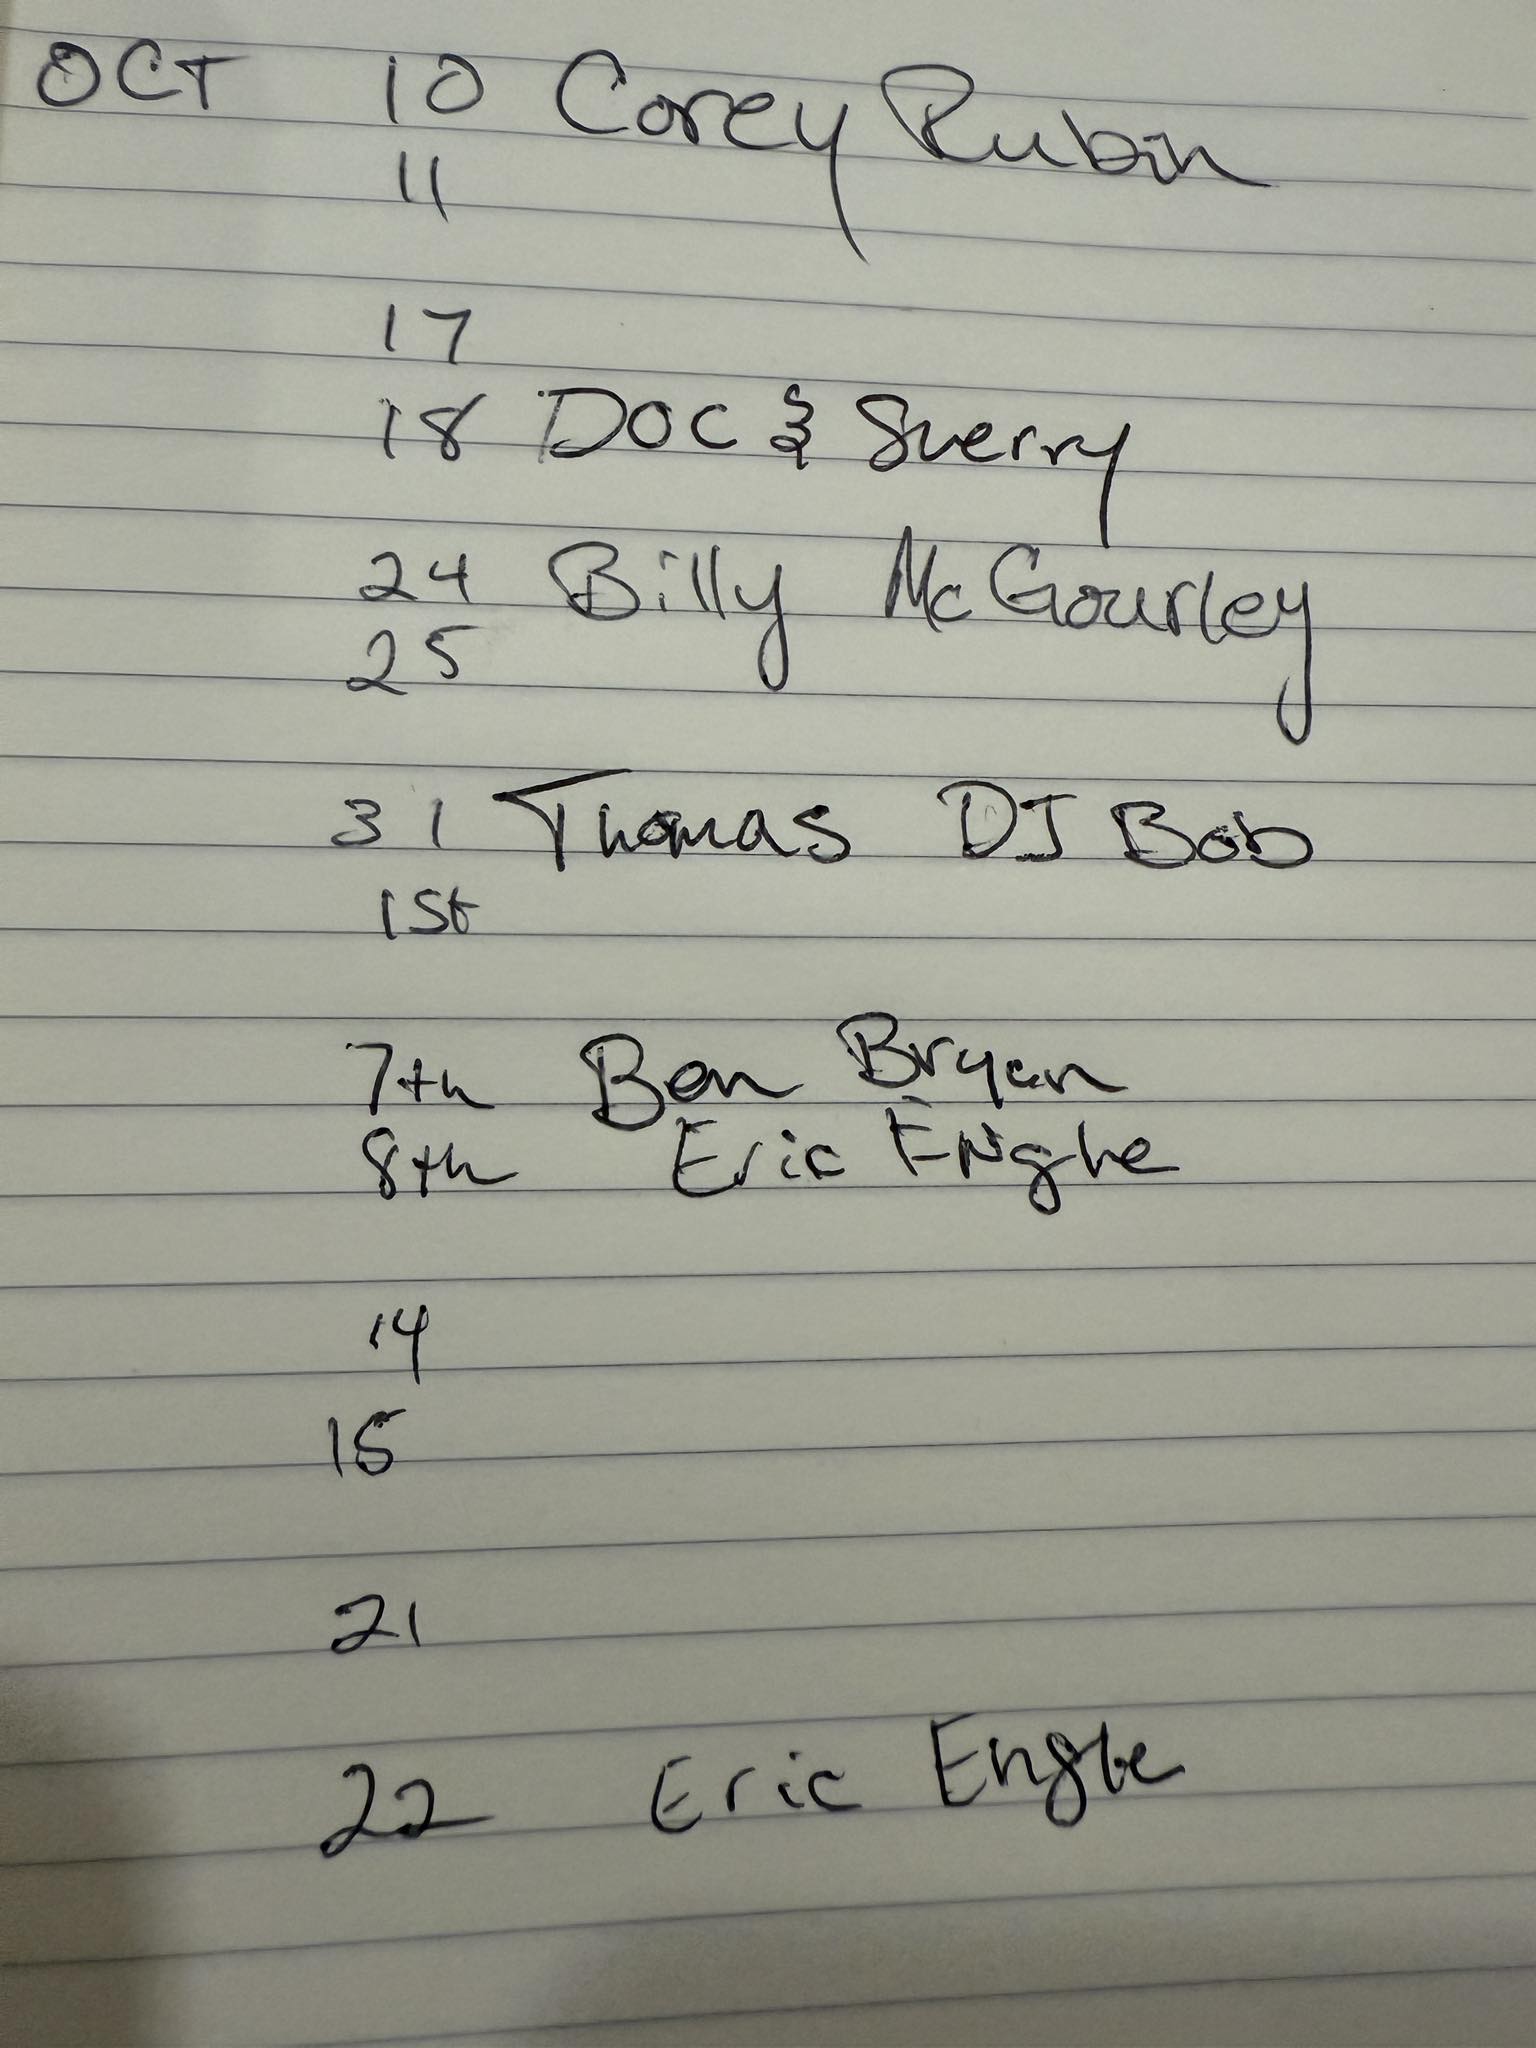 OCT 10 Corey Rubin
11
17
18 DOC & Sherry
24 Billy McGourley
25
31 Thomas DJ Bob
1st
7th Ben Bryan
8th Eric Enghe
14
15
21
22 Eric Engle